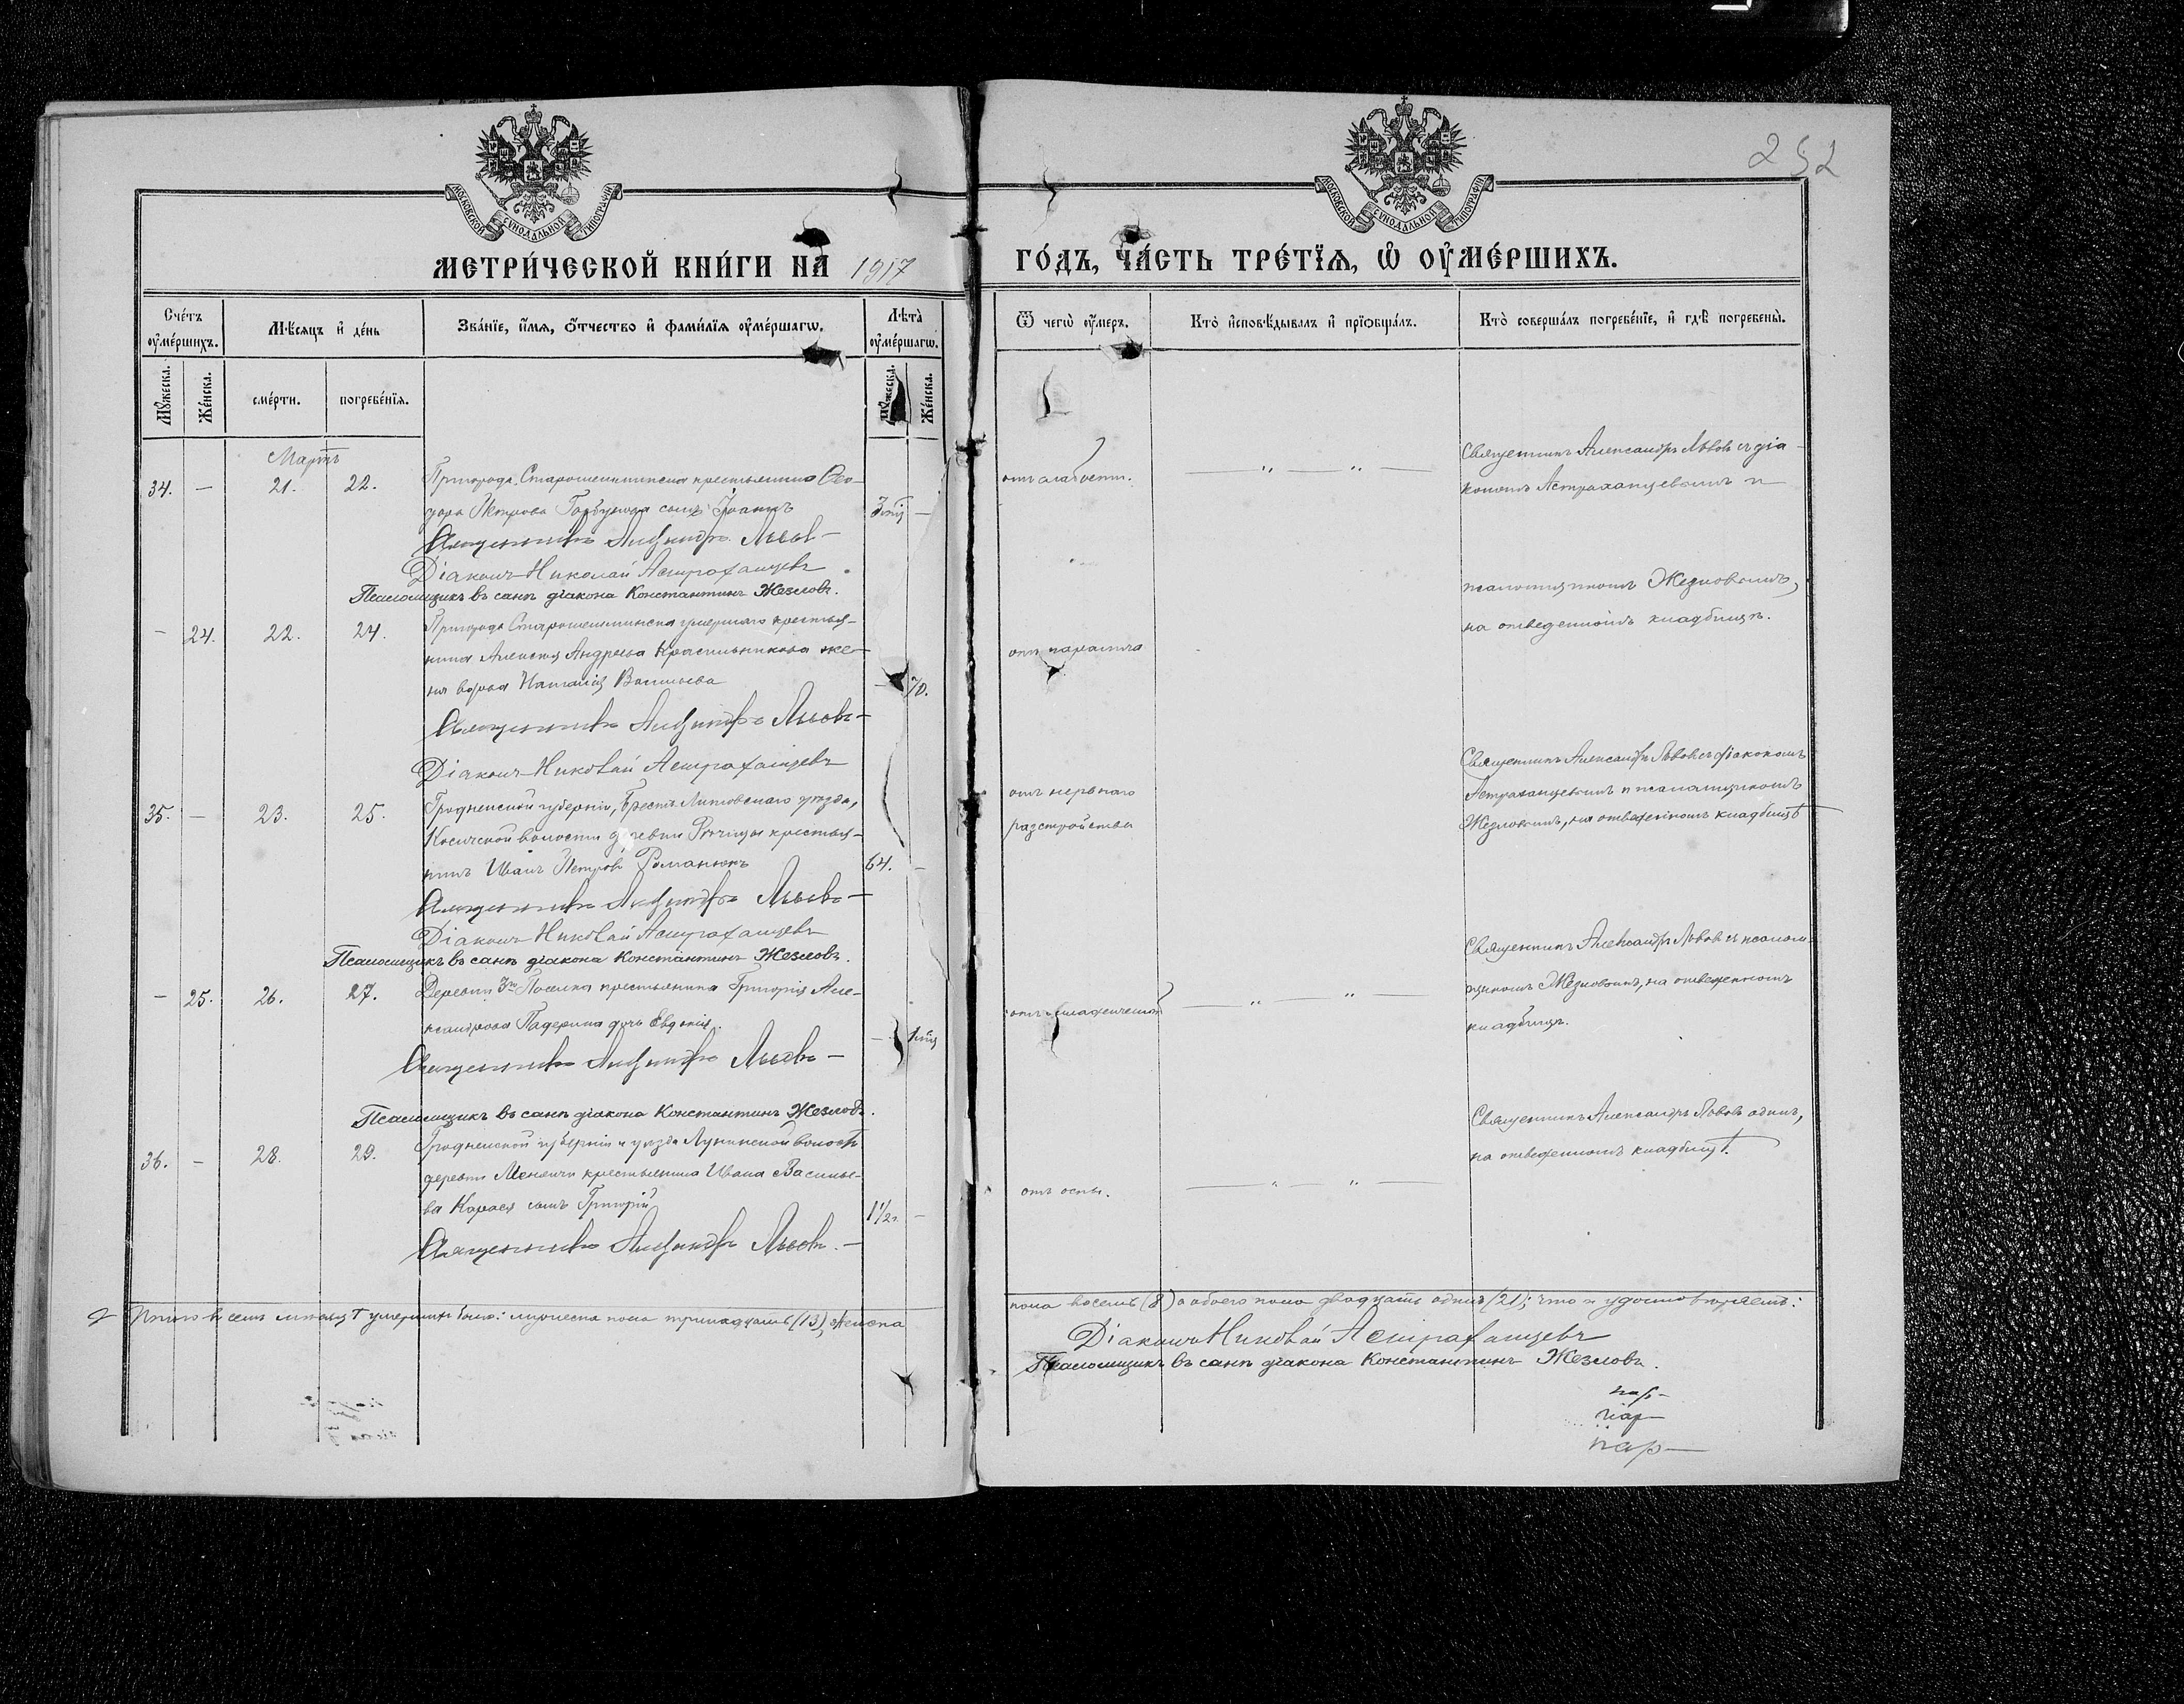 252
МОСКОВСКОЙ СУНОДАЛЬНОЙ ТИПОГРАФІИ
МОСКОВСКОЙ СУНОДАЛЬНОЙ ТИПОГРАФІИ
МЕТРИ́ЧЕСКОЙ КНИ́ГИ НА̀ 1917 ГО́ДЪ, ЧА́СТЬ ТРЕ́ТЇѦ, Ѽ ОУ҆МЕ́РШИХЪ.
Сче́тъ оу҆ме́ршихъ.
Мѣ́сяцъ и҆ де́нь
Зва́нїе, и҆́мѧ, ѻ҆́тчество и҆ фами́лїѧ оу҆ме́ршагѡ.
Лѣ́та оу҆ме́ршагѡ.
Ѿ чегѡ̀ оу҆́меръ.
Кто̀ и҆сповѣ́дывалъ и҆ прїѡбща́лъ.
Кто̀ соверша́лъ погребе́нїе, и҆ гдѣ̀ погребены̀.
Му́жеска.
Же́нска.
сме́рти.
погребе́нїѧ.
Му́жеска.
Же́нска.
Мартъ
34. — 21. 22. Пригорода Старошешминска крестьянина Ѳео-
дора Петрова Горбунова сынъ Іоаннъ
Священникъ Александръ Львовъ
Діаконъ Николай Астраханцевъ
Псаломщикъ въ санѣ діакона Константинъ Жезловъ.
отъ слабости.
Священникъ Александръ Львовъ съ діа-
кономъ Астраханцевымъ и
псаломщикомъ Жезловымъ,
на отведенномъ кладбищѣ.
— 24. 22. 24. Пригорода Старошешминска умершаго крестья-
нина Алексѣя Андреева Красильникова же-
на вдова Наталія Васильева — 70.
Священникъ Александръ Львовъ
Діаконъ Николай Астраханцевъ
отъ паралича
35. — 23. 25. Гродненской губерніи, Брестъ Литовскаго уѣзда,
Косичской волости деревни Рѣчицы крестья-
нинъ Иванъ Петровъ Романюкъ 64. —
Священникъ Александръ Львовъ
Діаконъ Николай Астраханцевъ
Псаломщикъ въ санѣ діакона Константинъ Жезловъ.
отъ нервнаго
разстройства
Священникъ Александръ Львовъ съ діакономъ
Астраханцевымъ и псаломщикомъ
Жезловымъ, на отведенномъ кладбищѣ
— 25. 26. 27. Деревни 3го Поселка крестьянина Григорія Але-
ксандрова Падерина дочь Евдокія.
Священникъ Александръ Львовъ
Псаломщикъ въ санѣ діакона Константинъ Жезловъ.
отъ младенческой
Священникъ Александръ Львовъ съ псалом-
щикомъ Жезловымъ, на отведенномъ
кладбищѣ.
36. — 28. 29. Гродненской губерніи и уѣзда Лунинской волости
деревни крестьянина Ивана Василье-
ва Карася сынъ Григорій 1 1/2 г. —
Священникъ Александръ Львовъ.
отъ оспы.
Священникъ Александръ Львовъ одинъ,
на отведенномъ кладбищѣ.
Итого въ семъ мѣсяцѣ умершихъ было: мужеска пола тринадцать (13), женска
пола восемь (8) а обоего пола двадцать одинъ (21); что и удостовѣряемъ:
Діаконъ Николай Астраханцевъ
Псаломщикъ въ санѣ діакона Константинъ Жезловъ.